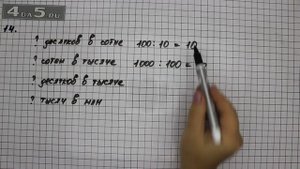 4ДУ5.RU
14.
? десятков в сотне 100 : 10 = 10
? сотен в тысяче 1000 : 100 =
? десятков в тысяче
? тысяч в млн